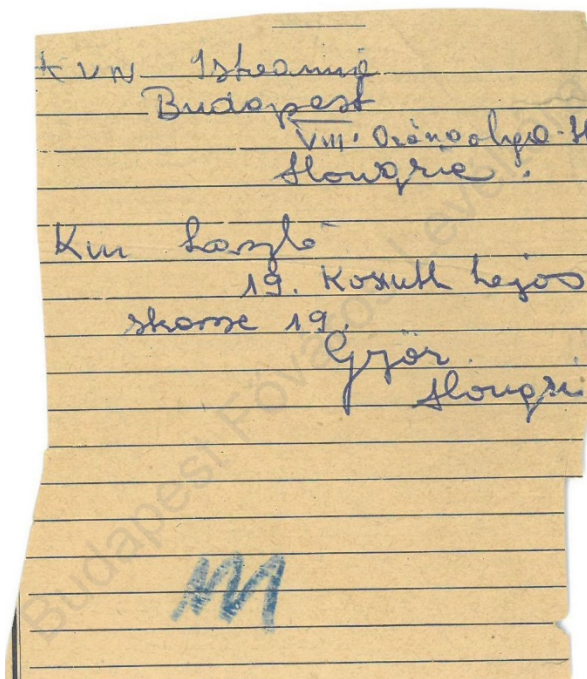 KVN Istvanné
Budapest
VIII.
Hongrie.
Kun László
19. Kossuth Lajos
strasse 19.
Győr
Hongri
Budapest Főváros Levéltára